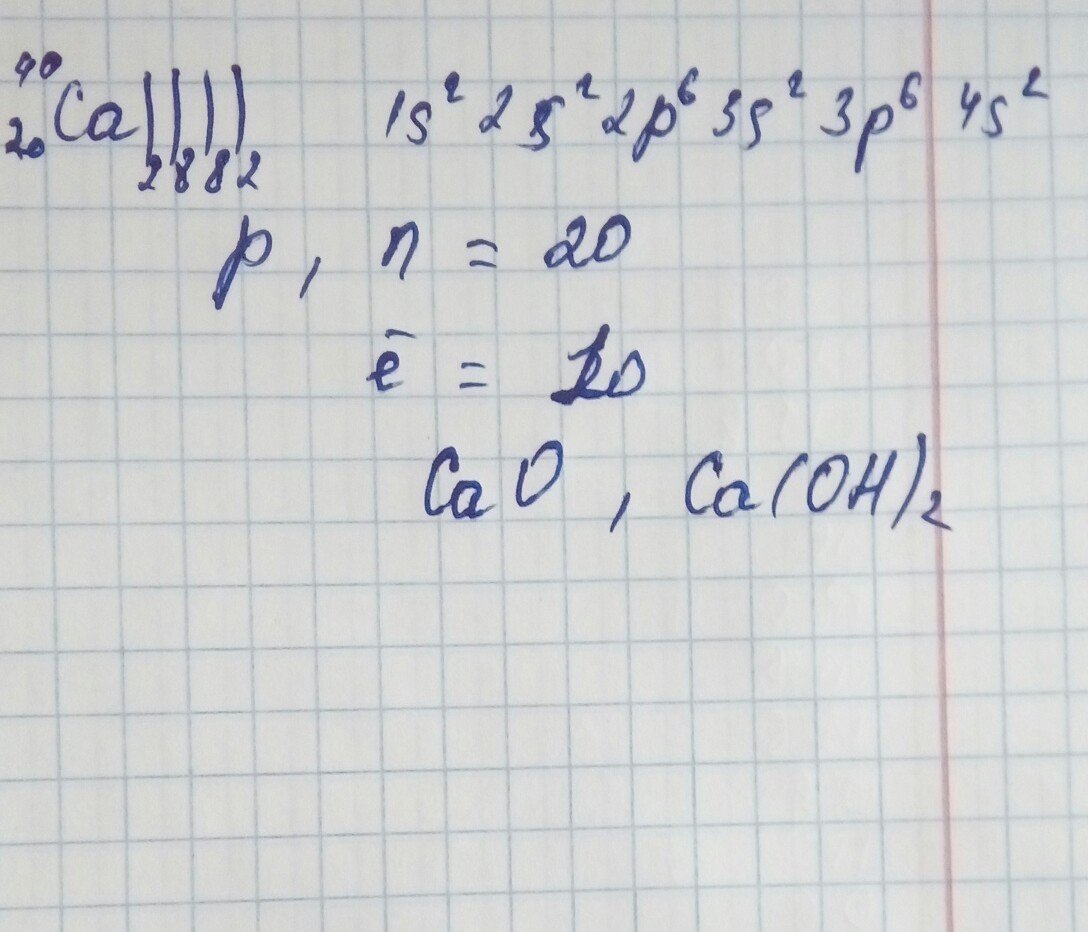 ⁴⁰₂₀Ca))))₂ ₈ ₈ ₂ 1s² 2s² 2p⁶ 3s² 3p⁶ 4s²
p, n = 20
ē = 20
CaO, Ca(OH)₂